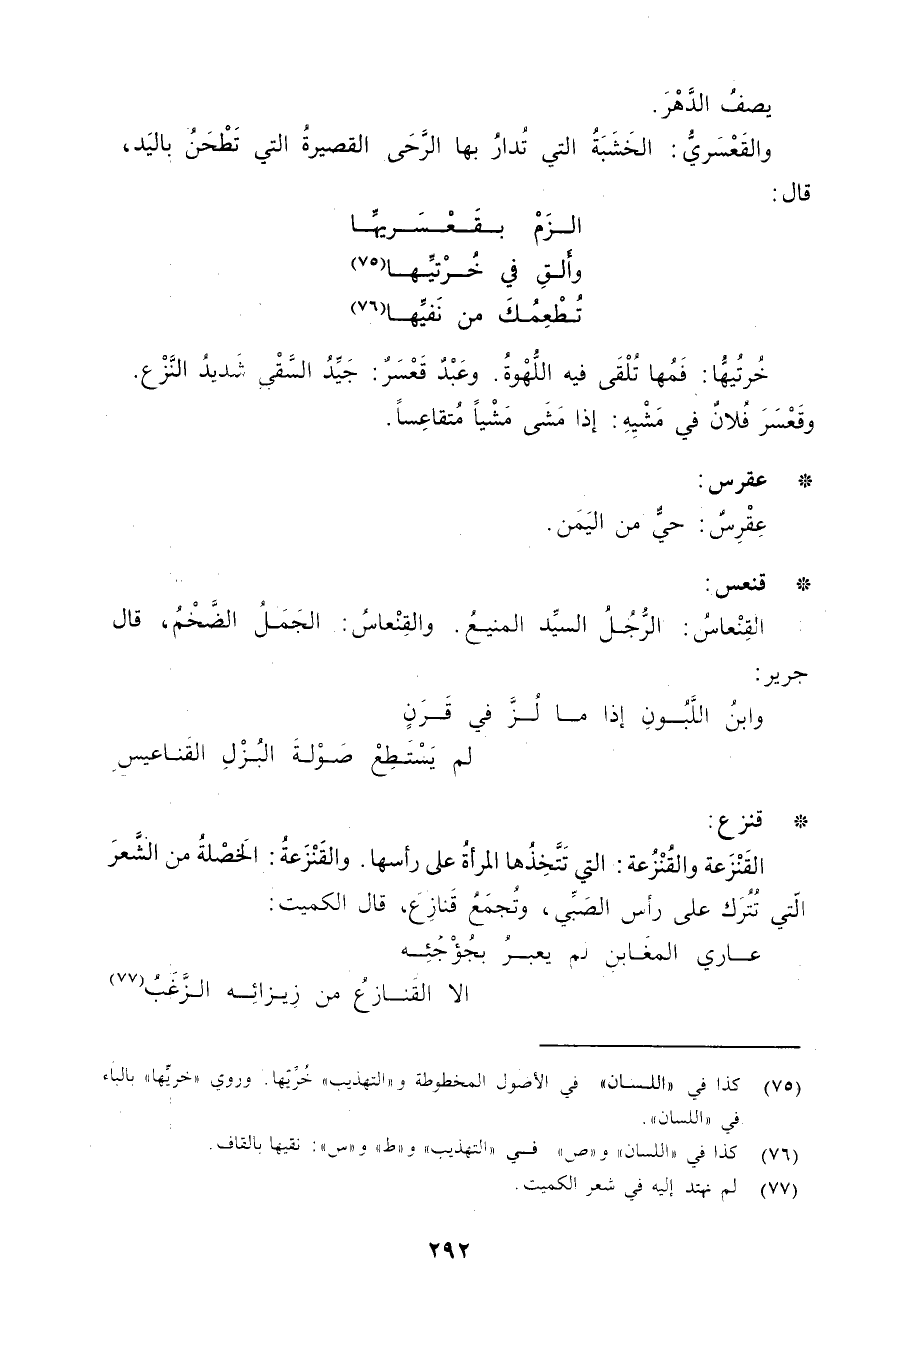 يصفُ الدَّهْرَ.
والقَعْسَريُّ: الخَشَبَةُ التي تُدارُ بها الرَّحَى القصيرةُ التي تَطْحَنُ باليَد،
قال:
الـزَمْ بـقَـعْـسَـريهَّـا
وألـقِ في خُـرْتيِّـهـا(٧٥)
تُـطْعِمُـكَ من نَفيِّهـا(٧٦)
خُرتُيهُّا: فَمُها تُلْقَى فيه اللُّهْوةُ. وعَبْدٌ قَعْسَرٌ: جَيِّدُ السَّقْي شَديدُ النَّزْع.
وقَعْسَرَ فُلانٌ في مَشْيِهِ: إذا مَشَى مَشْياً مُتقاعِساً.
* عقرس:
عِقْرِسٌ: حيٌّ من اليَمَن.
* قنعس:
القِنْعاسُ: الرَّجُـلُ السيِّد المنيـعُ. والقِنْعاسُ: الجَمَـلُ الضَّخْمُ، قال
جرير:
وابنُ اللَّبُـونِ إذا مـا لُـزَّ في قَـرَنٍ
لم يَسْتَـطِعْ صَـوْلـةَ البُـزْلِ القَنـاعيسِ
* قنزع:
القَنْزَعة والقُنْزُعة: التي تَتَّخِذُها المرأةُ على رأسها. والقَنْزَعةُ: الخَصْلةُ من الشَّعرَ
الّتي تُتْرَك على رأس الصَبِّي، وتُجمَعُ قَنازِع، قال الكميت:
عـاري المغَـابن لم يعبـرُ بجُؤْجُئِـه
الا القَنـازعُ من زِيـزائِـه الـزَّغَبُ(٧٧)
(٧٥) كذا في «اللسان» في الأصول المخطوطة و«التهذيب» خُرِّيّها. وروي «خربّها» بالباء
في «اللسان».
(٧٦) كذا في «اللسان» و«ص» فـي «التهذيب» و«ط» و«س»: نقيها بالقاف.
(٧٧) لم نهتد إليه في شعر الكميت.
٢٩٢